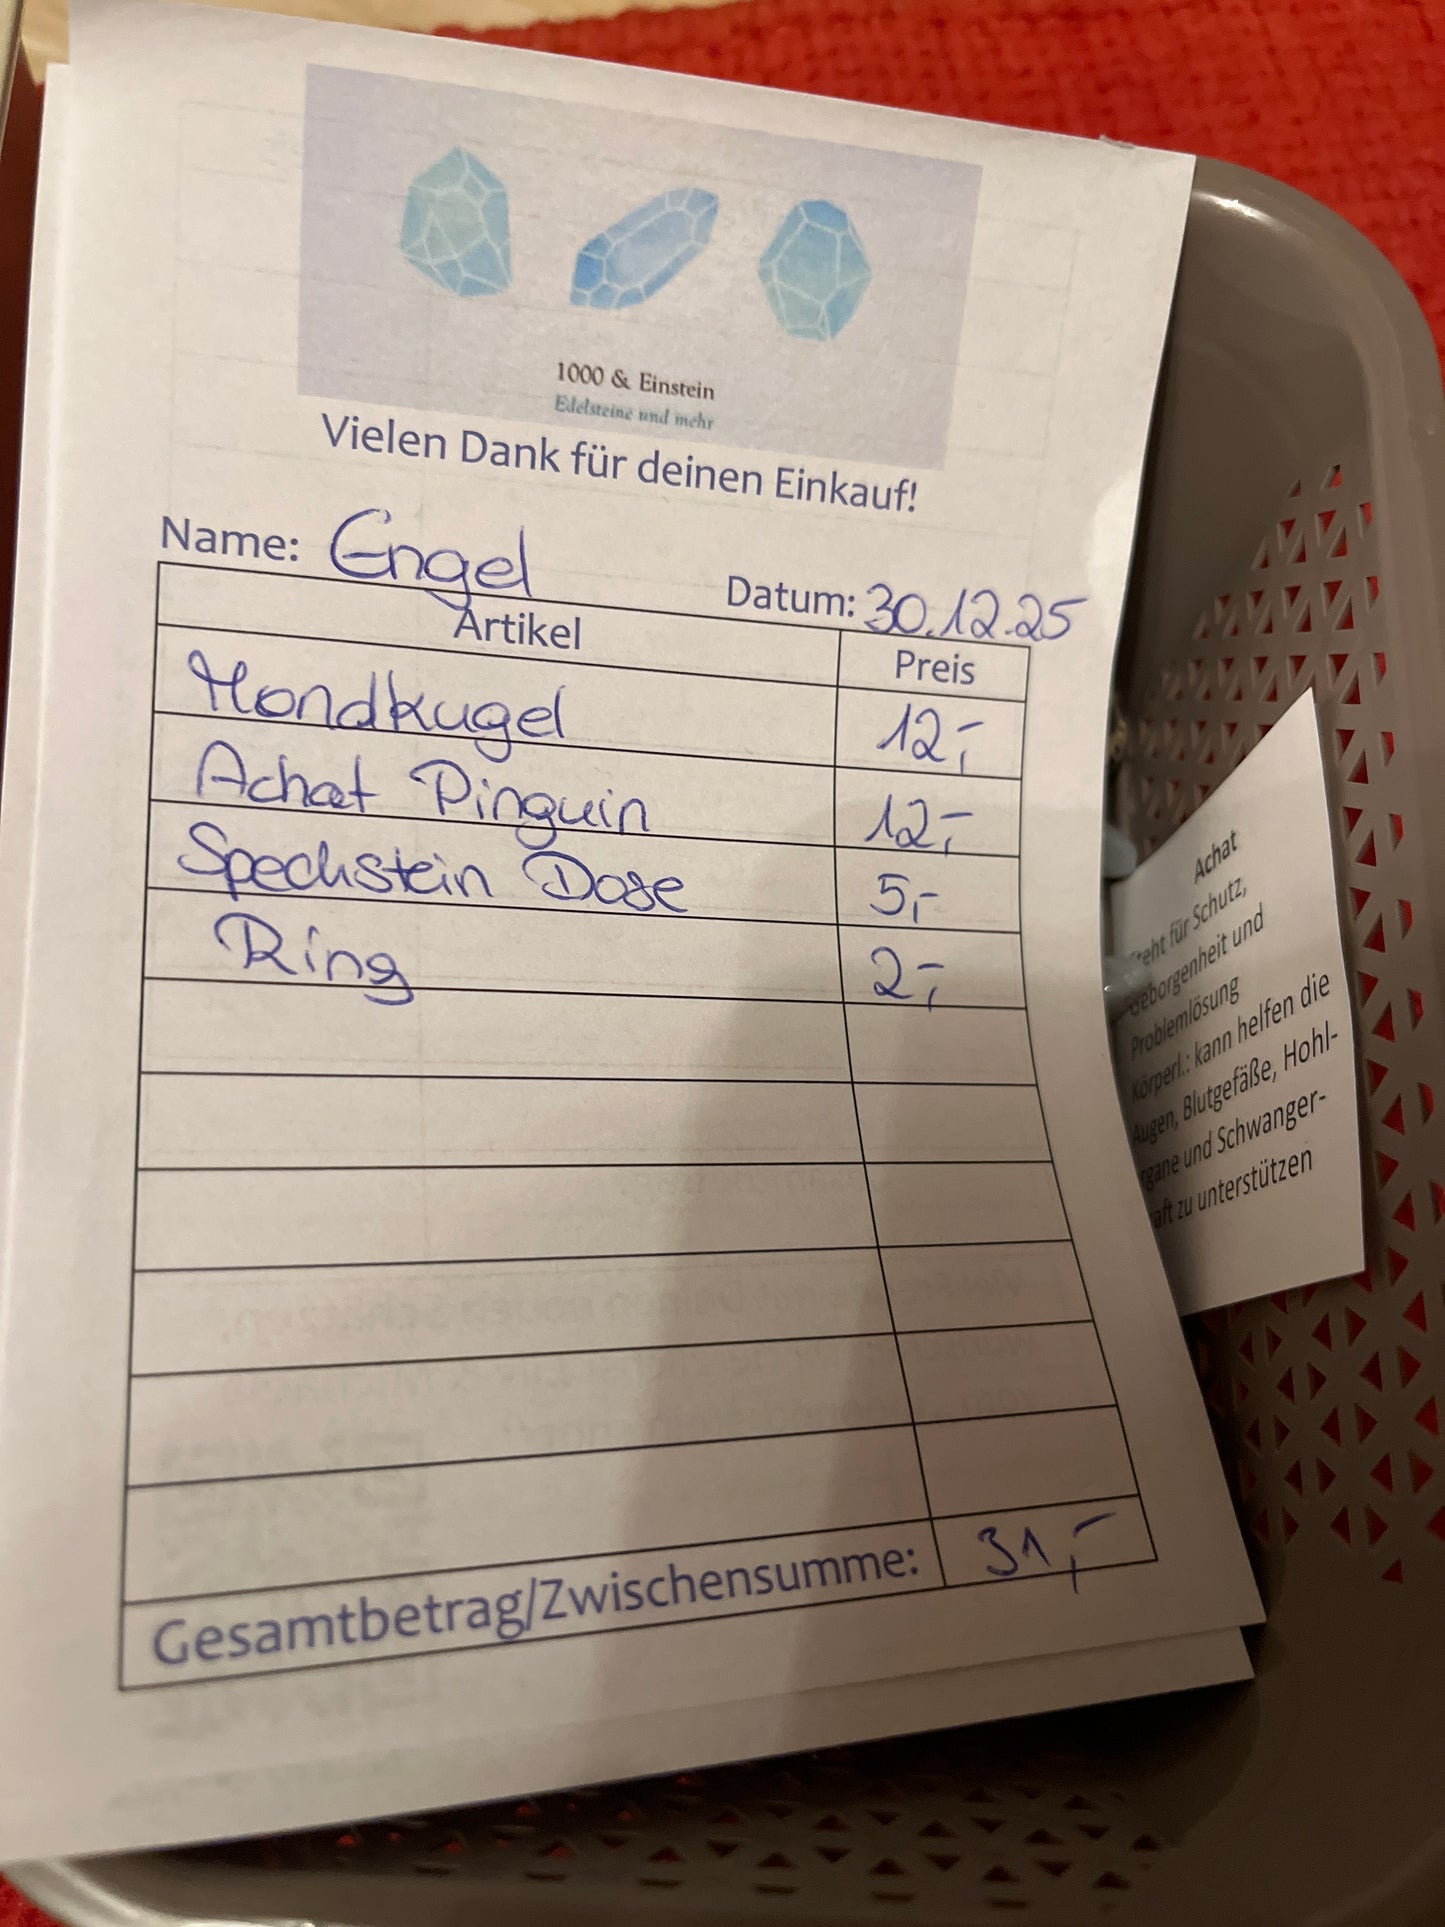 1000 & Einstein
Edelsteine und mehr
Vielen Dank für deinen Einkauf!
Name: Engel
Datum: 30.12.25
Artikel Preis
Mondkugel 12,-
Achat Pinguin 12,-
Speckstein Dose 5,-
Ring 2,-
Gesamtbetrag/Zwischensumme: 31,-
Achat
steht für Schutz,
Geborgenheit und
Problemlösung
Körperl.: kann helfen die
Augen, Blutgefäße, Hohl-
rgane und Schwanger-
aft zu unterstützen